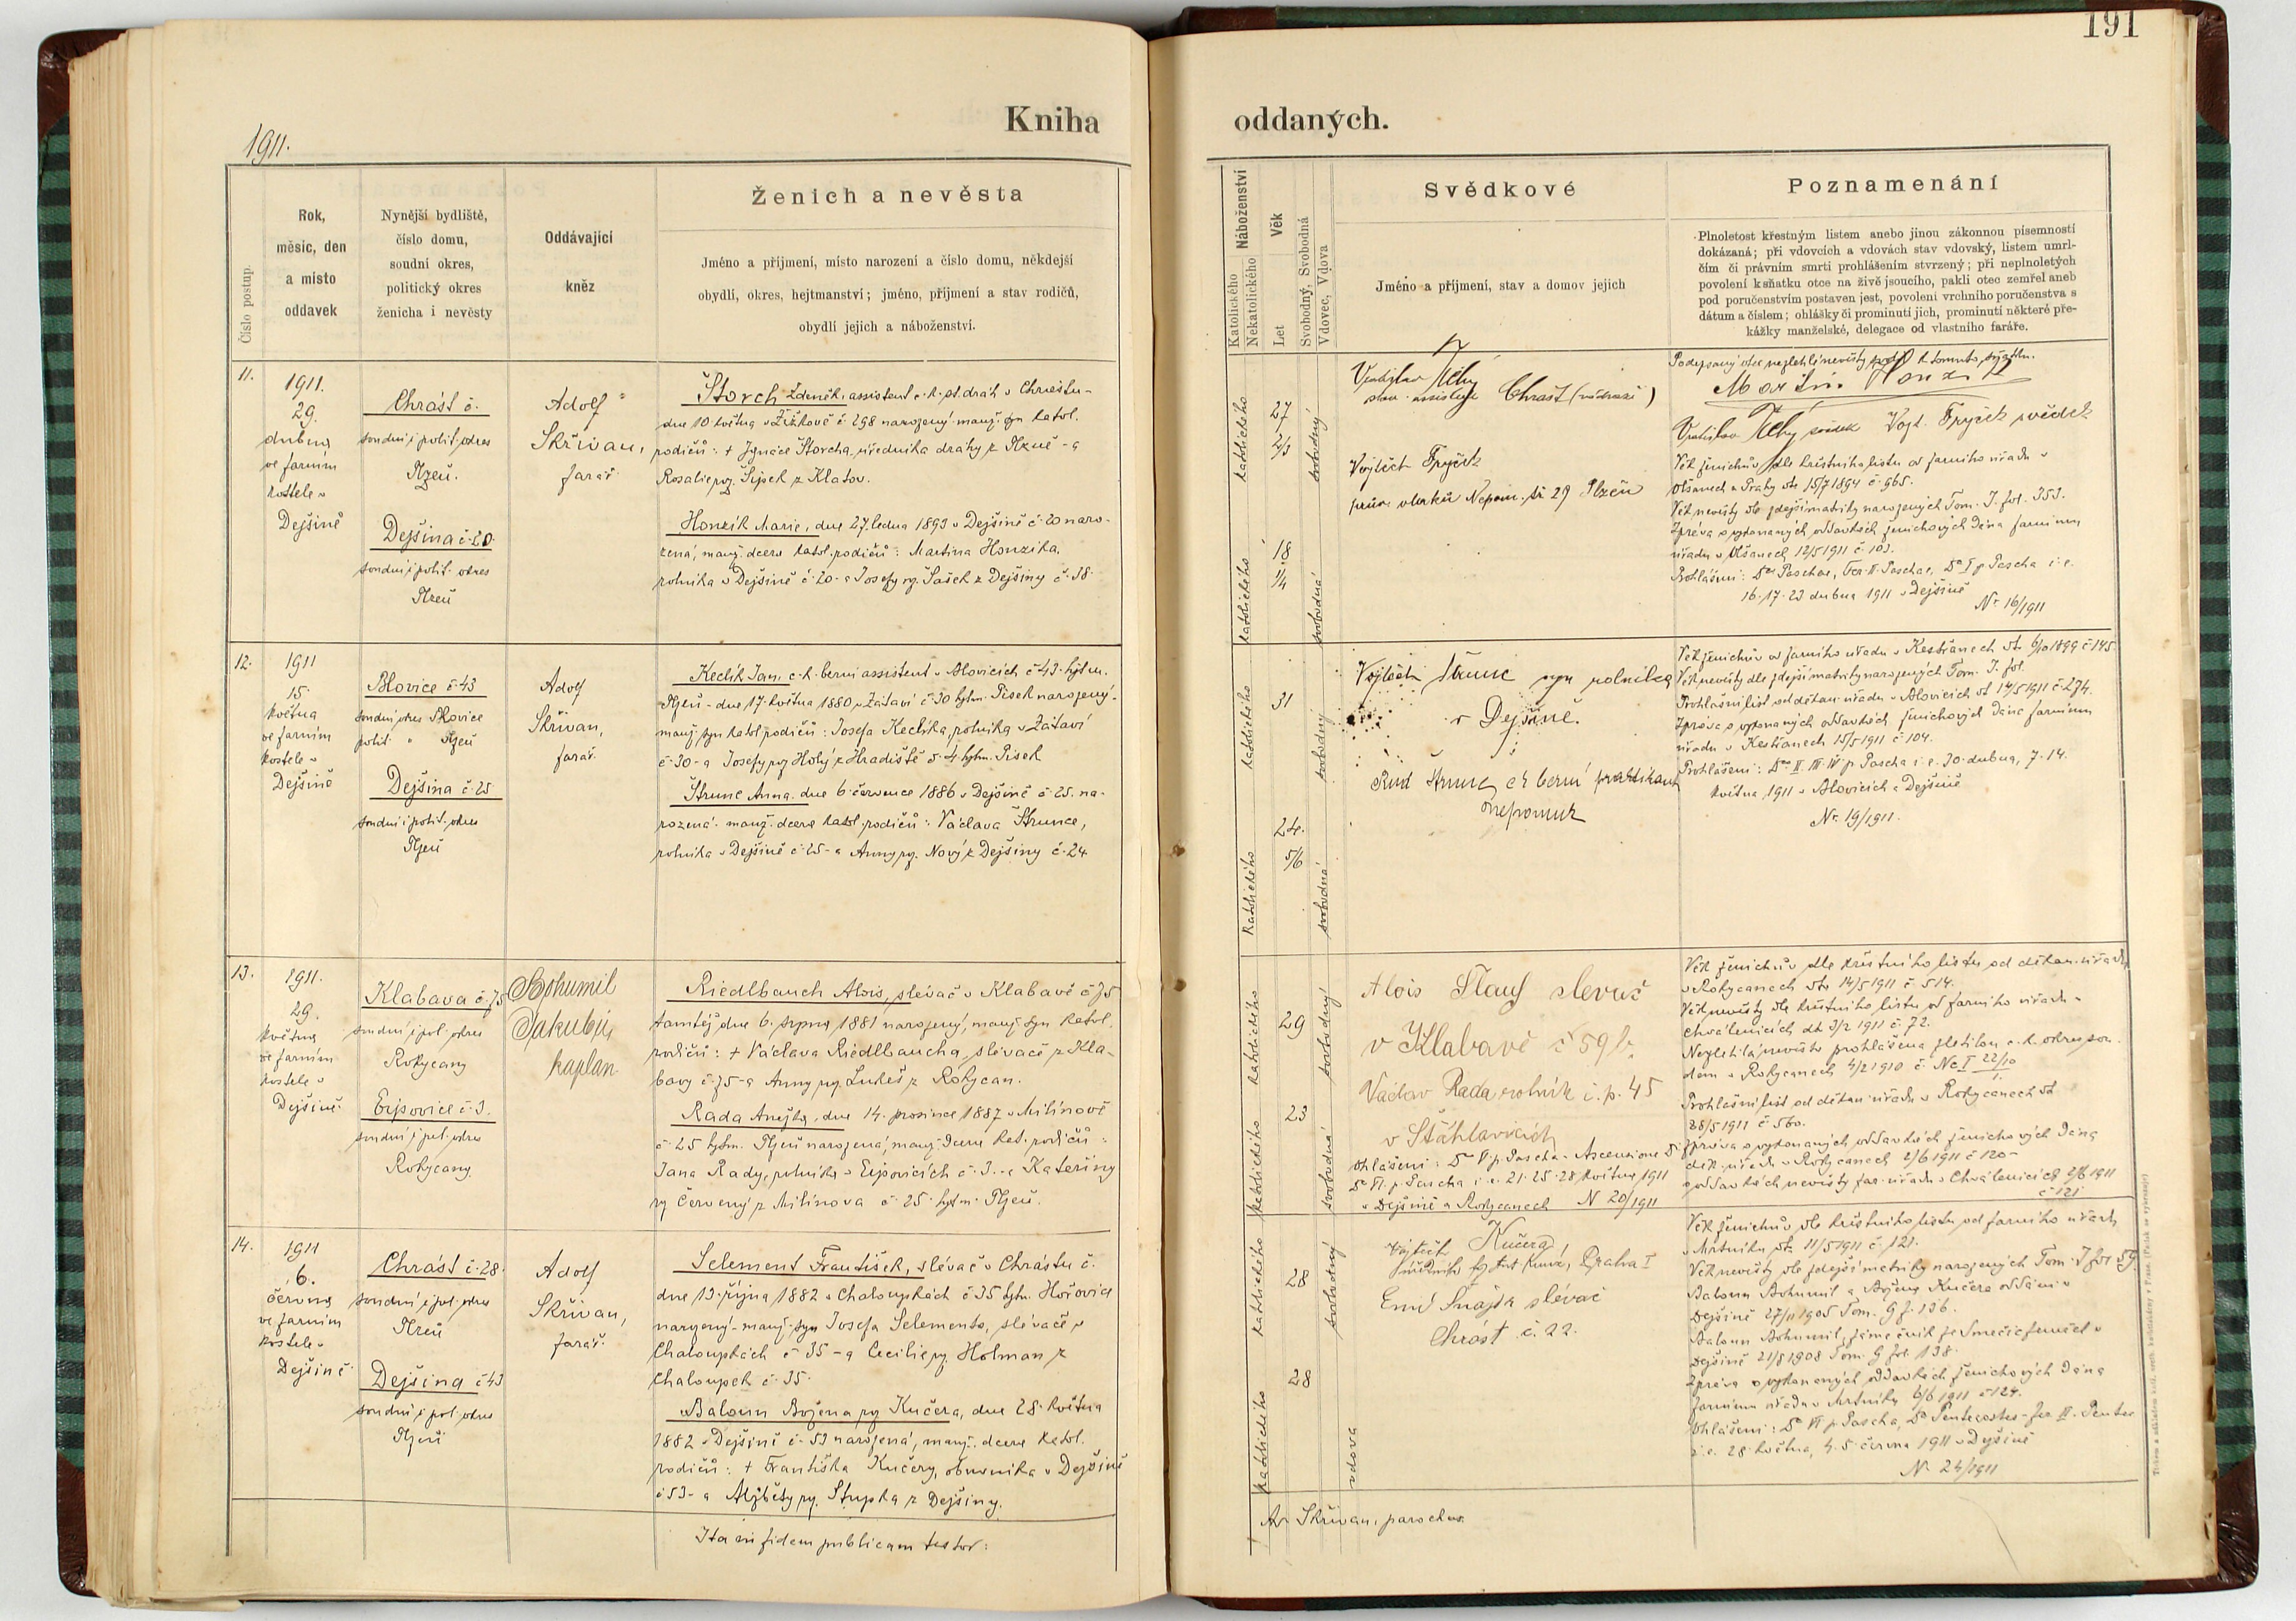 191
Kniha
oddaných.
1911.
Číslo postup.
Rok,
měsíc, den
a místo
oddavek
Nynější bydliště,
číslo domu,
soudní okres,
politický okres
ženicha i nevěsty
Oddávající
kněz
Ženich a nevěsta
Jméno a příjmení, místo narození a číslo domu, někdejší
obydlí, okres, hejtmanství; jméno, příjmení a stav rodičů,
obydlí jejich a náboženství.
Náboženství
Katolického
Nekatolického
Věk
Let
Svobodný, Svobodná
Vdovec, Vdova
Svědkové
Jméno a příjmení, stav a domov jejich
Poznamenání
Plnoletost křestným listem anebo jinou zákonnou písemností
dokázaná; při vdovcích a vdovách stav vdovský, listem umrl-
čím či právním smrti prohlášením stvrzený; při neplnoletých
povolení k sňatku otce na živě jsoucího, pakli otec zemřel aneb
pod poručenstvím postaven jest, povolení vrchního poručenstva s
dátum a číslem; ohlášky či prominutí jich, prominutí některé pře-
kážky manželské, delegace od vlastního faráře.
11.
1911.
29.
dubna
ve farním
kostele v
Dejšině
Chrást č.
soudní i polit. okres
Plzeň.
Dejšina č. 20.
soudní i polit. okres
Plzeň
Adolf
Skřivan,
farář
Štorch Zdeněk, assistent c. k. st. drah v Chrástu -
dne 10. května v Žižkově č. 298 narozený manž. syn katol.
rodičů: + Ignáce Štorcha, úředníka dráhy z Plzně - a
Rosalie roz. Šípek z Klatov.
Honzík Marie, dne 27. ledna 1893 v Dejšině č. 20 naro-
zená, manž. dcera katol. rodičů: Martina Honzíka,
rolníka v Dejšině č. 20 - a Josefy roz. Sašek z Dejšiny č. 38.
katolického
27
2/3
svobodný
katolického
18
1/4
svobodná
Vratislav
stav. assistent Chrást (nádraží)
Vojtěch Fryček
prův. vlaků Nepom. tř. 29 Plzeň
Podepsaný otec nezletilé nevěsty svolil k tomuto sňatku.
Martin Honzík
Vratislav svědek Vojt. Fryček svědek
Věk ženichův dle křestního listu od farního úřadu v
Olšanech u Prahy dto 15/7 1894 č. 965.
Věk nevěsty dle zdejší matriky narozených Tom. I. fol. 353.
Zpráva o vykonaných oddavkách ženichových dána farnímu
úřadu v Olšanech 12/5 1911 č. 103.
Prohlášení: Dca Paschae, Fer. II. Paschae, Dca I p. Pascha i. e.
16. 17. 23 dubna 1911 v Dejšině
Nr. 16/1911
12.
1911
15.
května
ve farním
kostele v
Dejšině
Blovice č. 43
soudní okres Blovice
polit. " Plzeň
Dejšina č. 25
soudní i polit. okres
Plzeň
Adolf
Skřivan,
farář.
Keclík Jan, c. k. berní assistent v Blovicích č. 43. hejtm.
Plzeň - dne 17. května 1880 v Žátaví č. 30 hejtm. Písek narozený -
manž. syn katol. rodičů: Josefa Keclíka, rolníka v Žátaví
č. 30 - a Josefy roz. Holý z Hradiště č. 4. hejtm. Písek
Štrunc Anna. dne 6. července 1886 v Dejšině č. 25. na-
rozená. manž. dcera katol. rodičů: Václava Štrunce,
rolníka v Dejšině č. 25 - a Anny roz. Nový z Dejšiny č. 24
katolického
31
svobodný
katolického
24.
5/6
svobodná
Vojtěch Štrunc syn rolníka
v Dejšině.
Rud Štrunc c k berní praktikant
Nepomuk
Věk ženichův od farního úřadu v Kestřanech dto 6/10 1899 č. 145
Věk nevěsty dle zdejší matriky narozených Tom. I. fol.
Prohlášní list od děkan. úřadu v Blovicích dt 14/5 1911 č. 274.
Zpráva o vykonaných oddavkách ženichových dána farnímu
úřadu v Kestřanech 15/5 1911 č. 104.
Prohlášení: Dca II. III. IV p. Pascha i. e. 30. dubna, 7. 14.
května 1911 v Blovicích a Dejšině
Nr. 19/1911.
13.
1911.
29.
května
ve farním
kostele v
Dejšině.
Klabava č. 75
soudní i pol. okres
Rokycany
Ejpovice č. 3.
soudní i pol. okres
Rokycany.
Bohumil
kaplan.
Riedlbauch Alois, slévač v Klabavě č. 75
tamtéž dne 6. srpna 1881 narozený, manž. syn katol.
rodičů: + Václava Riedlbaucha, slévače z Kla-
bavy č. 75 - a Anny roz. Lukeš z Rokycan.
Rada Anežka, dne 14. prosince 1887 v Milínově
č. 25 hejtm. Plzeň narozená, manž. dcera kat. rodičů:
Jana Rady, rolníka v Ejpovicích č. 3. - a Kateřiny
roz. Červený z Milínova č. 25 hejtm. Plzeň.
katolického
29
svobodný
katolického
23
svobodná
Alois slevač
v Klabavě č 59 b.
Václav Rada rolník č. p. 45
v Štáhlavicích
Ohlášení: Dca V p. Pascha - Ascensione D.
Dca VI. p. Pascha i. e. 21. 25. 28 května 1911
v Dejšině a Rokycanech N 20/1911
Věk ženichův dle křestního listu od děkan. úřadu
v Rokycanech dto 14/5 1911 č. 514.
Věk nevěsty dle křestního listu od farního úřadu v
Chválenicích dt 3/2 1911 č. 72.
Nezletilá nevěsta prohlášena zletilou c. k. okres. sou-
dem v Rokycanech 4/2 1910 č. Nc I 22/10
1.
Prohlášní list od děkan. úřadu v Rokycanech dt
28/5 1911 č 560.
Zpráva o vykonaných oddavkách ženichových dána
děk. úřadu v Rokycanech 2/6 1911 č 120 -
o oddavkách nevěsty far. úřadu v Chválenicích 2/6 1911
č 121
14.
1911
6.
června
ve farním
kostele v
Dejšině
Chrást č. 28.
soudní i pol. okres
Plzeň
Dejšina č 43
soudní i pol. okres
Plzeň
Adolf
Skřivan,
farář.
Selement František, slévač v Chrástu č.
dne 13. října 1882 v Chaloupkách č. 35 hejtm. Hořovice
narozený - manž. syn Josefa Selementa, slévače v
Chaloupkách č 35 - a Cecilie roz. Holman z
Chaloupek č. 35.
Baloun Božena roz Kučera, dne 28. května
1882 v Dejšině č. 53 narozená, manž. dcera katol.
rodičů: + Františka Kučery, obuvníka v Dejšině
č 53 - a Alžběty roz. Stupka z Dejšiny.
katolického
28
svobodný
katolického
28
vdova
Vojtěch Kučera,
Praha I
Emil Šnajdr slévač
Chrást č. 22.
Věk ženichův dle křestního listu od farního úřadu
v Mrtníku dto 11/5 1911 č. 121.
Věk nevěsty dle zdejší matriky narozených Tom. I fol 59.
Baloun Bohumil a Božena Kučera oddáni v
Dejšině 27/11 1905 Tom. G f. 136.
Baloun Bohumil, zámečník ze Smečic zemřel v
Dejšině 21/8 1908 Tom. G fol. 138.
Zpráva o vykonaných oddavkách ženichových dána
farnímu úřadu v Mrtníku 6/6 1911 č 124.
Ohlášení: Dca VI p. Pascha, Dca Pentecostes - fer II. Pentec
i. e. 28 května, 4. 5. června 1911 v Dejšině
Nr. 24/1911
Ita in fidem publicam testor:
Ad Skřivan, parochus.